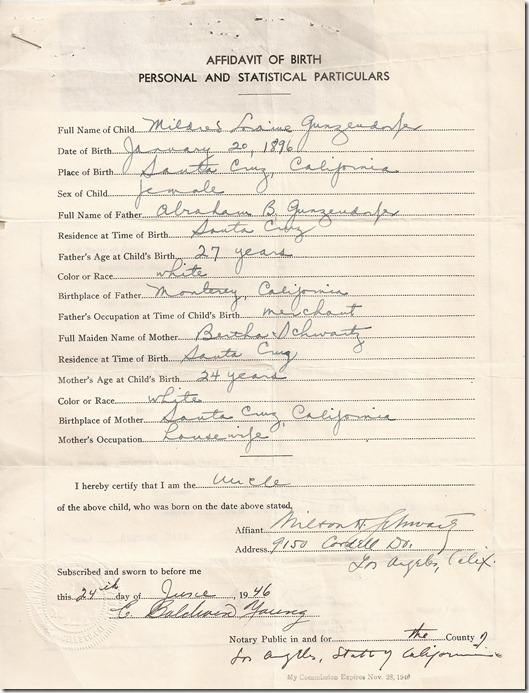 AFFIDAVIT OF BIRTH
PERSONAL AND STATISTICAL PARTICULARS
Full Name of Child Mildred Loraine Gunzendorfer
Date of Birth January 20, 1896
Place of Birth Santa Cruz, California
Sex of Child female
Full Name of Father Abraham B. Gunzendorfer
Residence at Time of Birth Santa Cruz
Father's Age at Child's Birth 27 years
Color or Race white
Birthplace of Father Monterey, California
Father's Occupation at Time of Child's Birth merchant
Full Maiden Name of Mother Bertha Schwartz
Residence at Time of Birth Santa Cruz
Mother's Age at Child's Birth 24 years
Color or Race white
Birthplace of Mother Santa Cruz, California
Mother's Occupation housewife
I hereby certify that I am the uncle
of the above child, who was born on the date above stated,
Affiant. Milton H. Schwartz
Address 9150 Cordell Dr.
Los Angeles, Calif.
Subscribed and sworn to before me
this 24th day of June, 1946
C. Baldwin Young
Notary Public in and for the County of
Los Angeles, State of California
My Commission Expires Nov. 28, 194